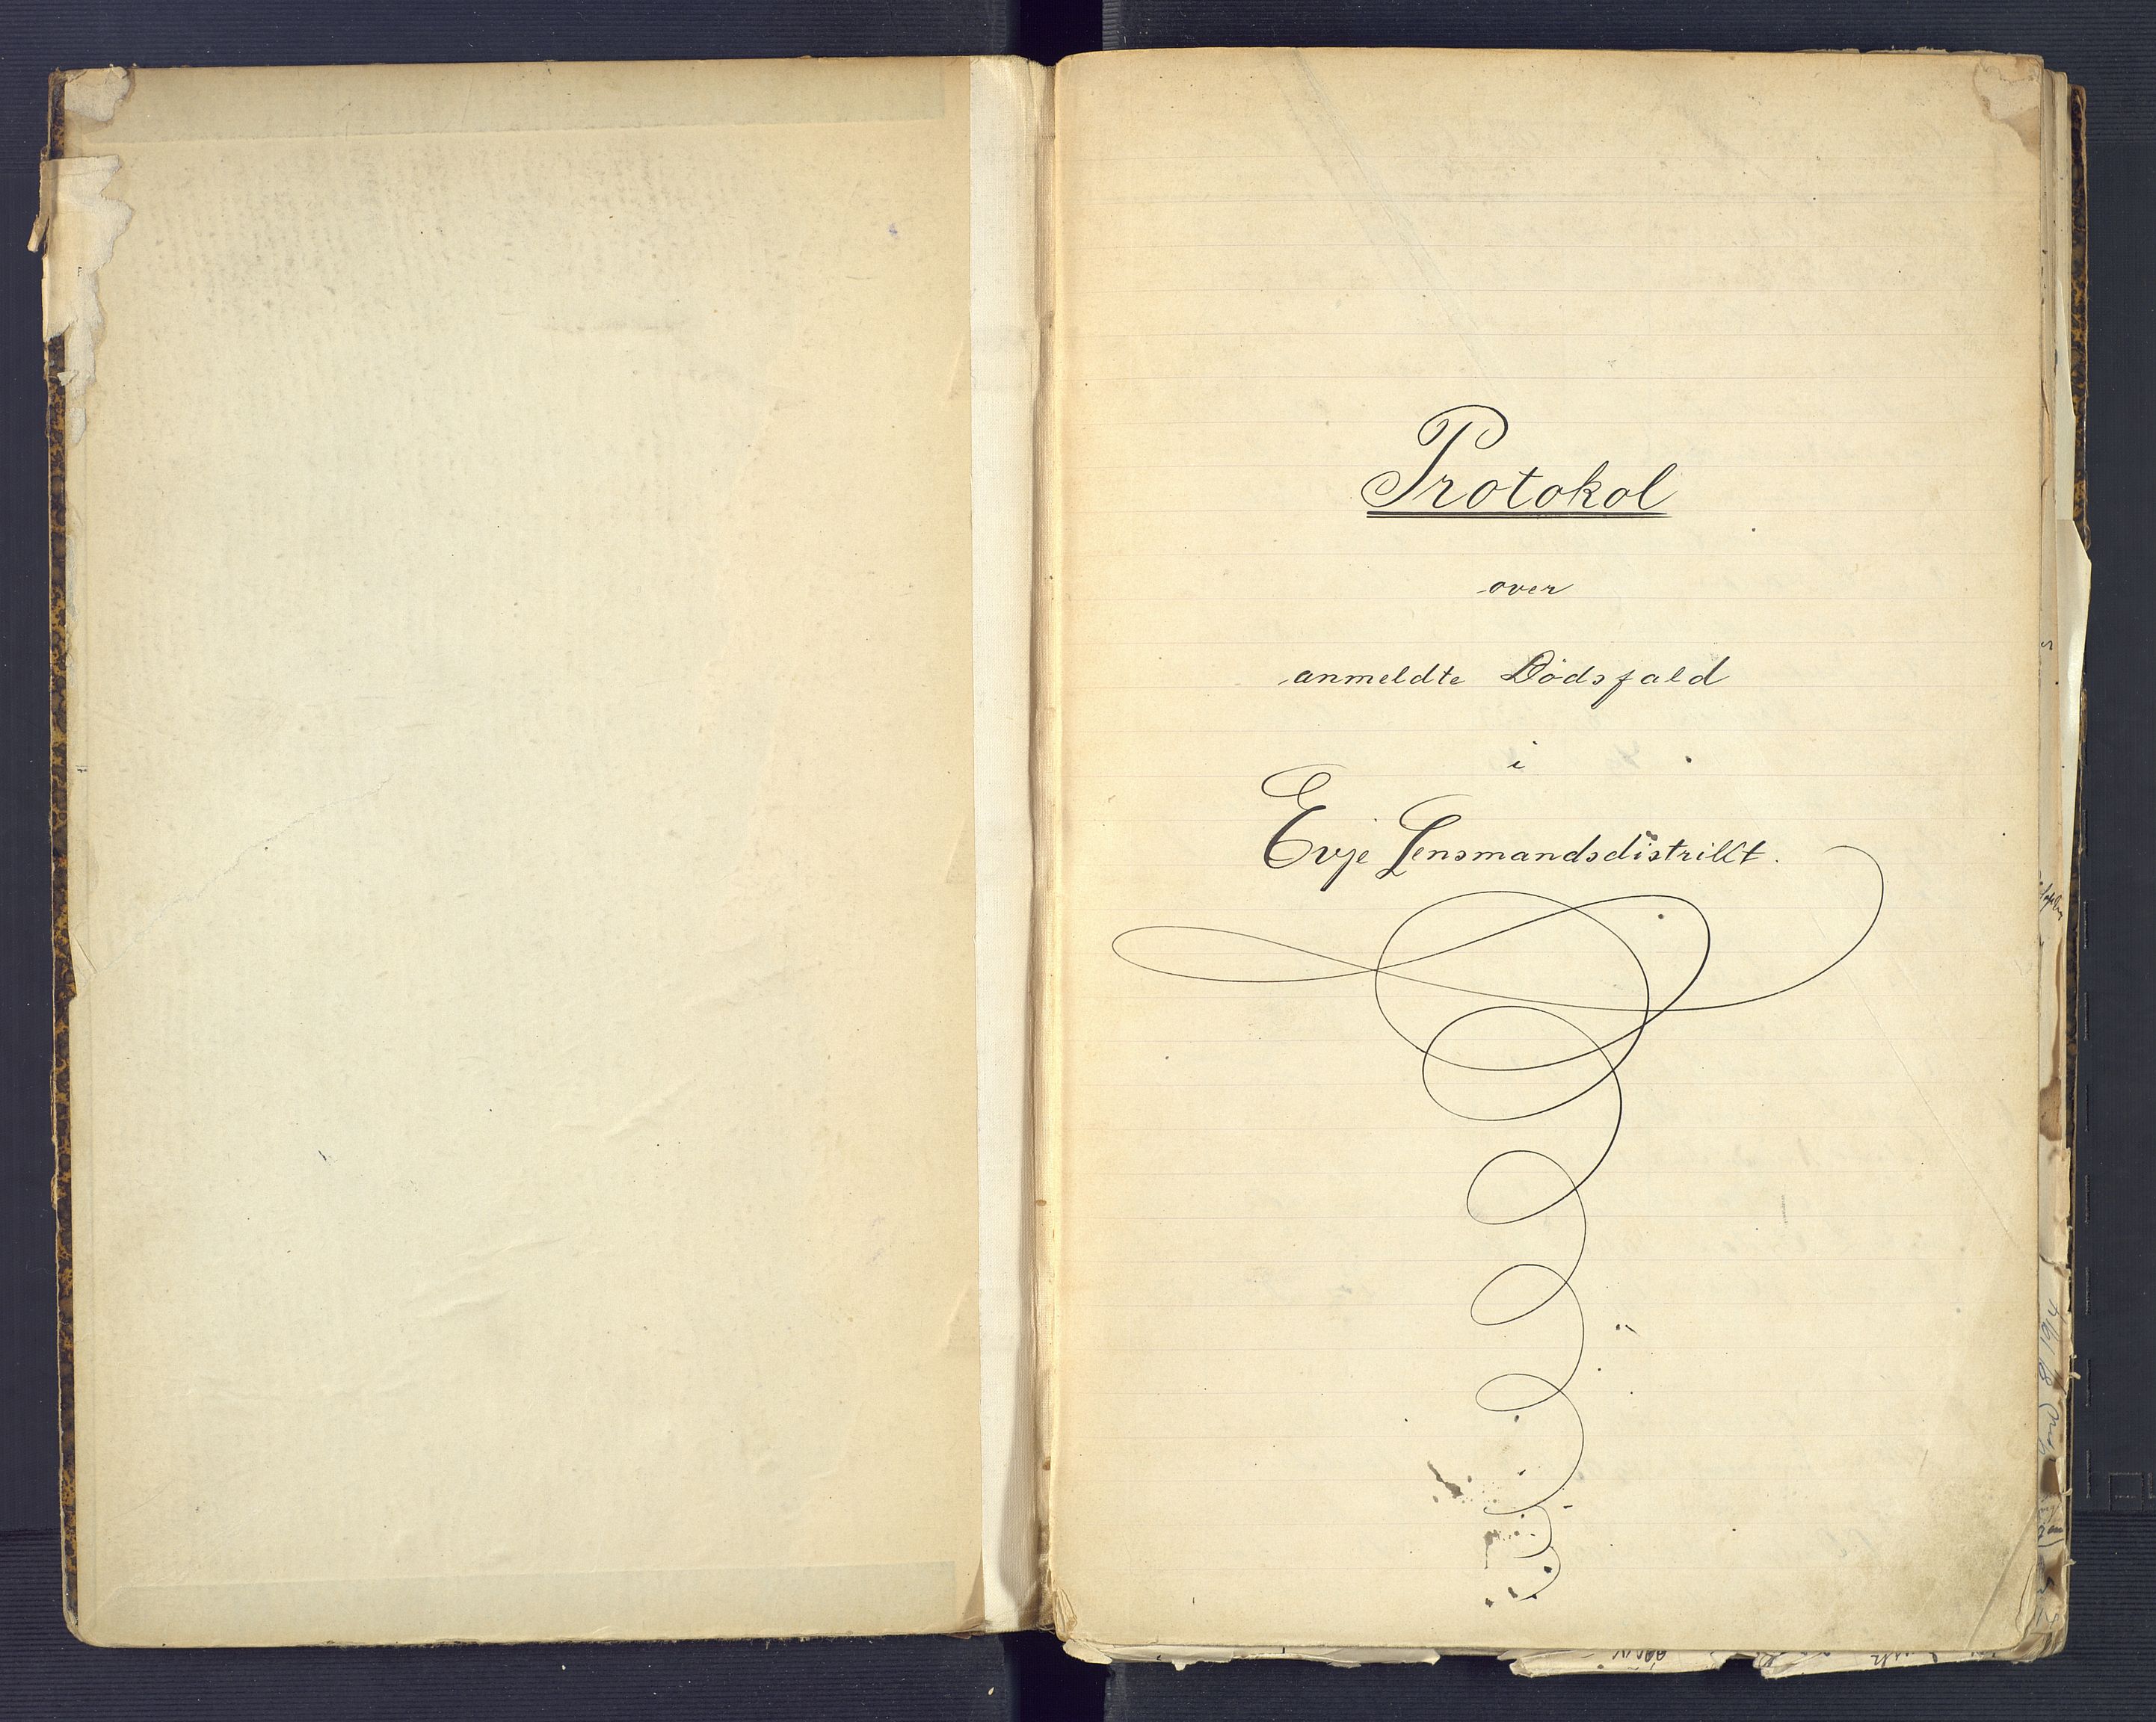 Protokol
over
anmeldte Dödsfald
i
Evje Lensmandsdistrikt.